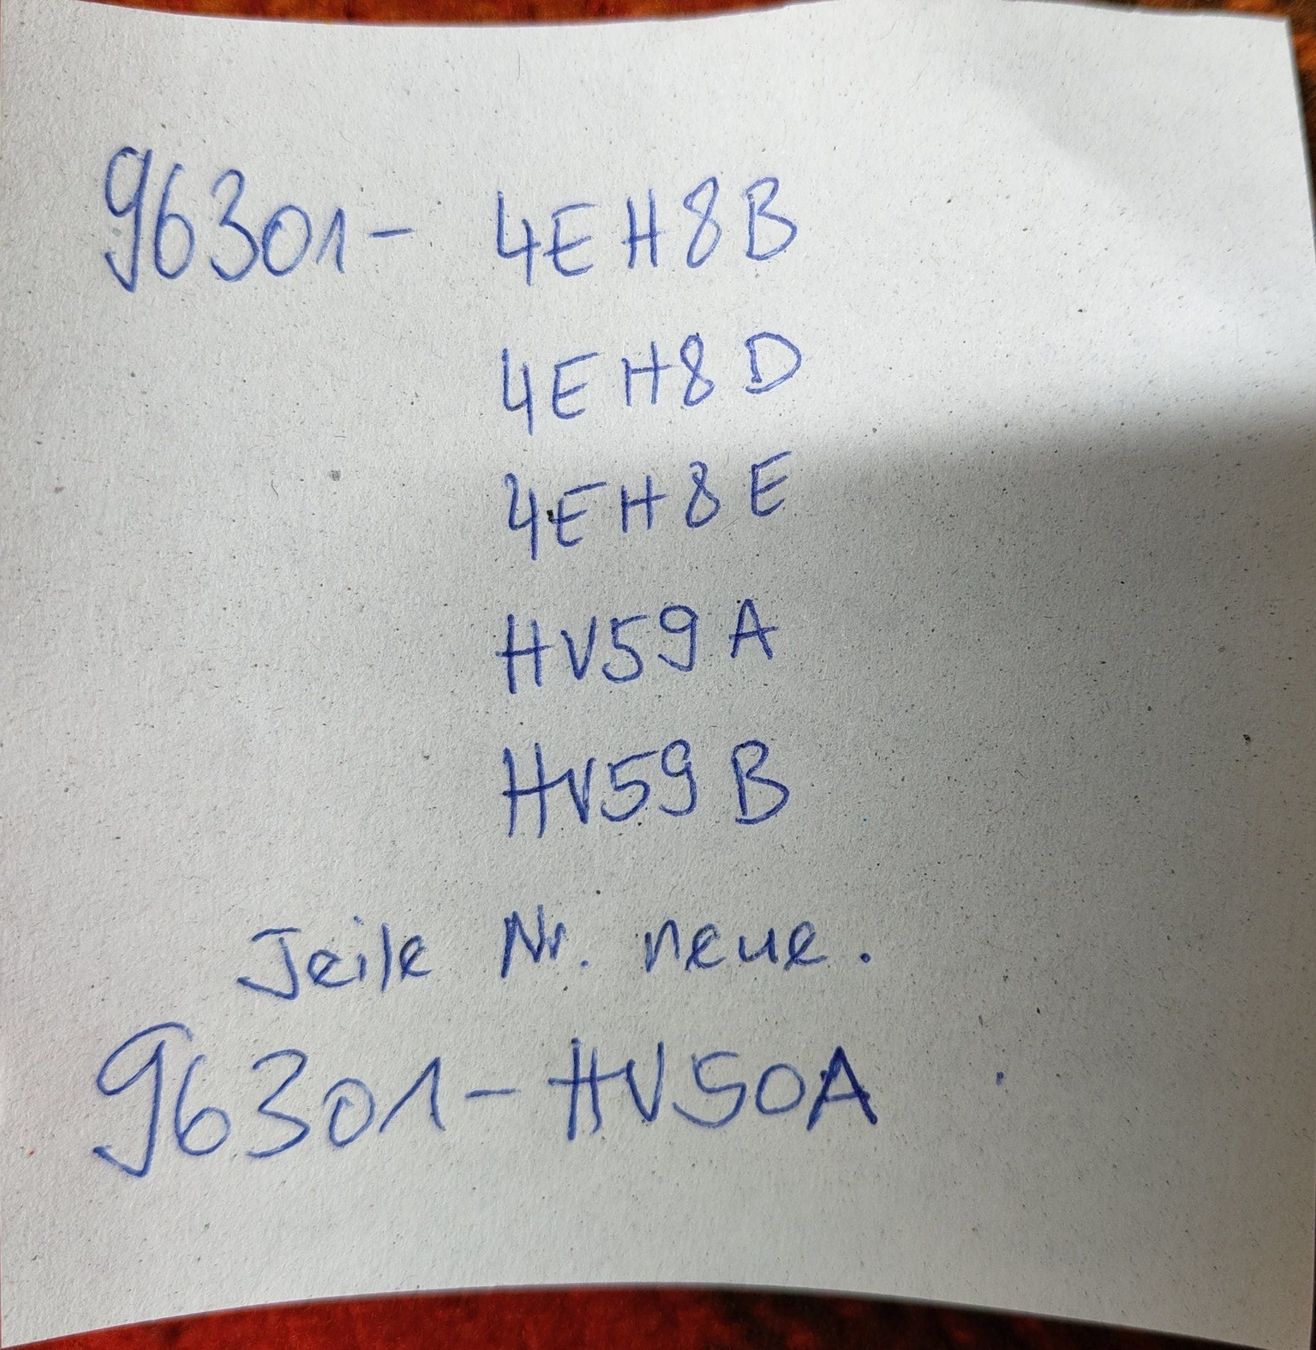 96301- 4EH8B
4EH8D
4EH8E
HV59A
HV59B
Teile Nr. neue.
96301-HV50A